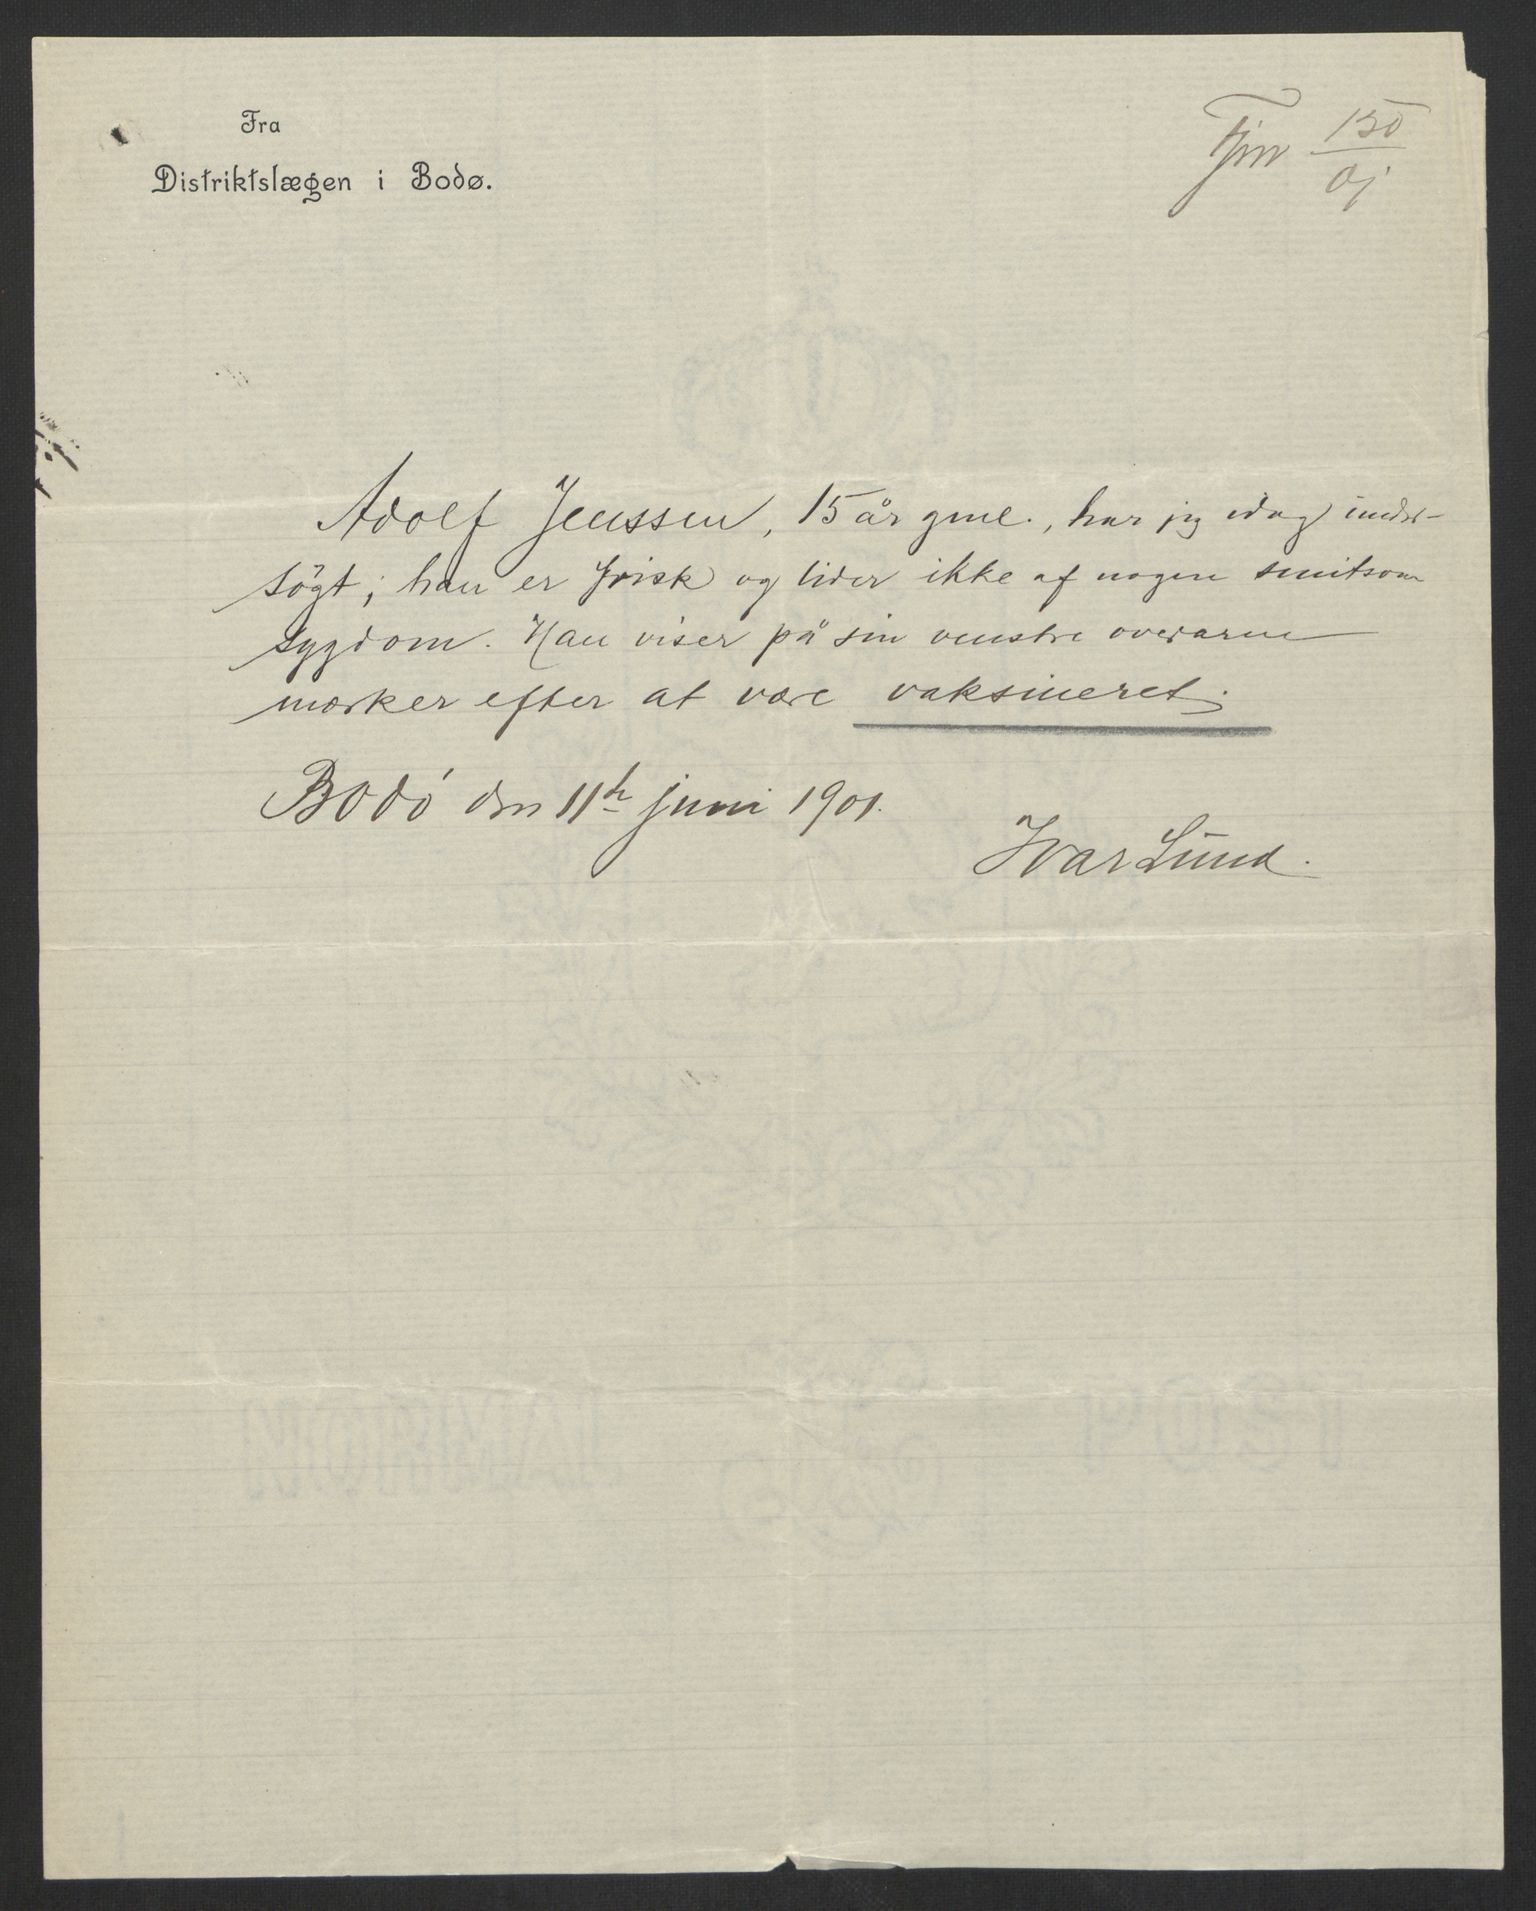 Fra
Distriktslægen i Bodø.
Fjnr 150/01
Adolf Jenssen, 15 år gml., har jeg idag under-
søgt; han er frisk og lider ikke af nogen smitsom
sygdom. Han viser på sin venstre overarm
mærker efter at være vaksineret.
Bodø den 11te juni 1901.
Ivar Lund.